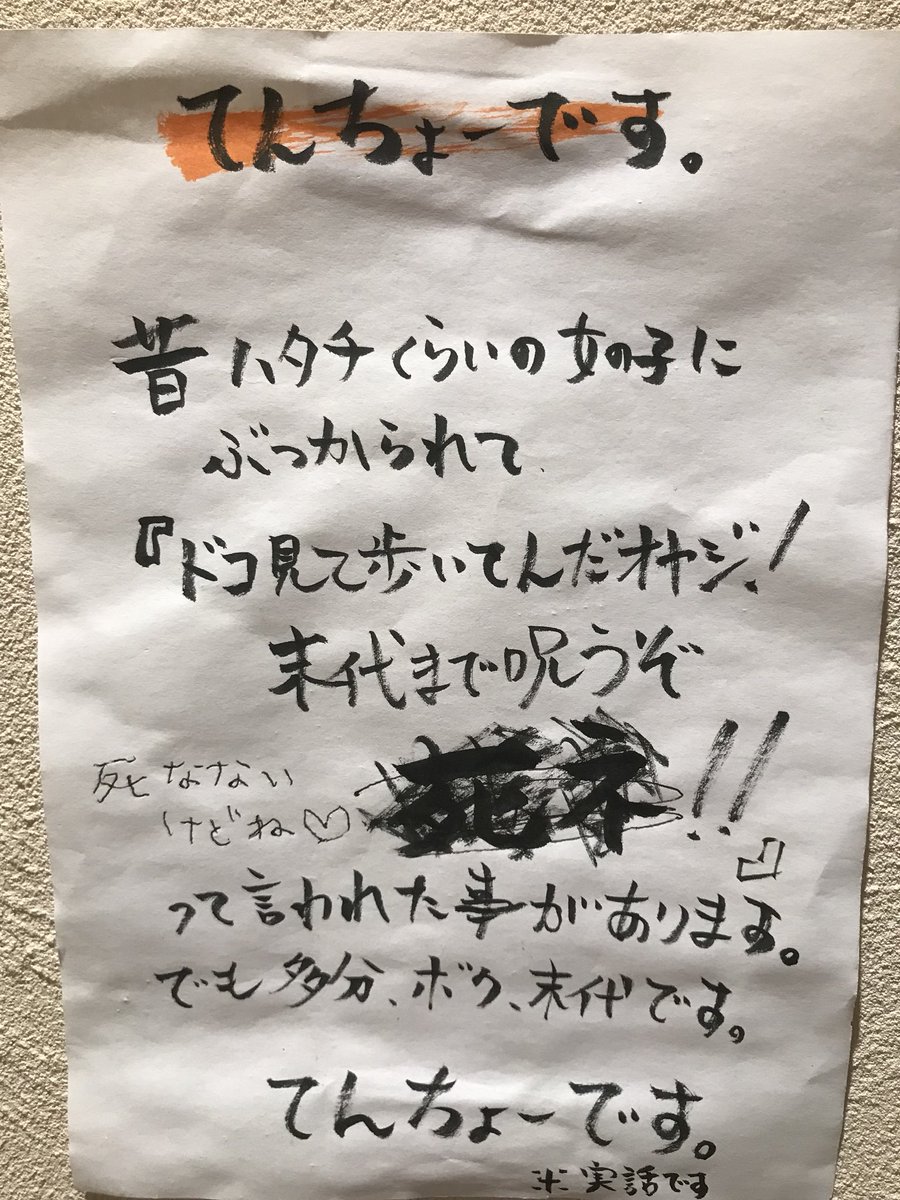 てんちょーです。
昔ハタチくらいの女の子に
ぶつかられて、
『ドコ見て歩いてんだオヤジ!
末代まで呪うぞ
死ネ!!』
死なない
けどね♡
って言われた事があります。
でも多分、ボク、末代です。
てんちょーです。
※実話です